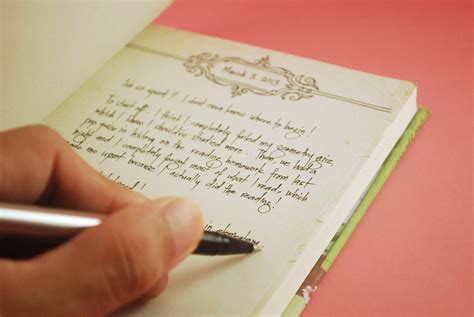 March 3, 2013
I'm so upset!! I don't even know where to begin!
To start off, I think I completely failed my geometry quiz,
which I know I should've studied more. Then, we had a
pop quiz in history on the reading homework from last
night and I completely forgot most of what I read, which
me upset because I actually did the reading!
in